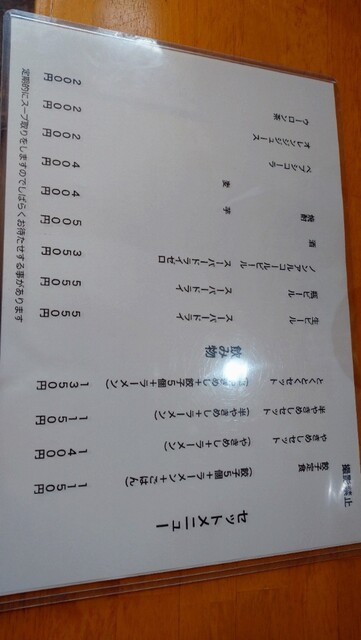 撮影禁止
セットメニュー
餃子定食 (餃子5個+ラーメン+ごはん) 1150円
やきめしセット (やきめし+ラーメン) 1400円
半やきめしセット (半やきめし+ラーメン) 1150円
とくとくセット きめし+餃子5個+ラーメン) 1350円
飲み物
生ビール スーパードライ 550円
瓶ビール スーパードライ 550円
ノンアルコールビール スーパードライゼロ 350円
酒 500円
焼酎 芋 400円
麦 400円
ペプシコーラ 200円
オレンジジュース 200円
ウーロン茶 200円
定期的にスープ取りをしますのでしばらくお待たせする事があります